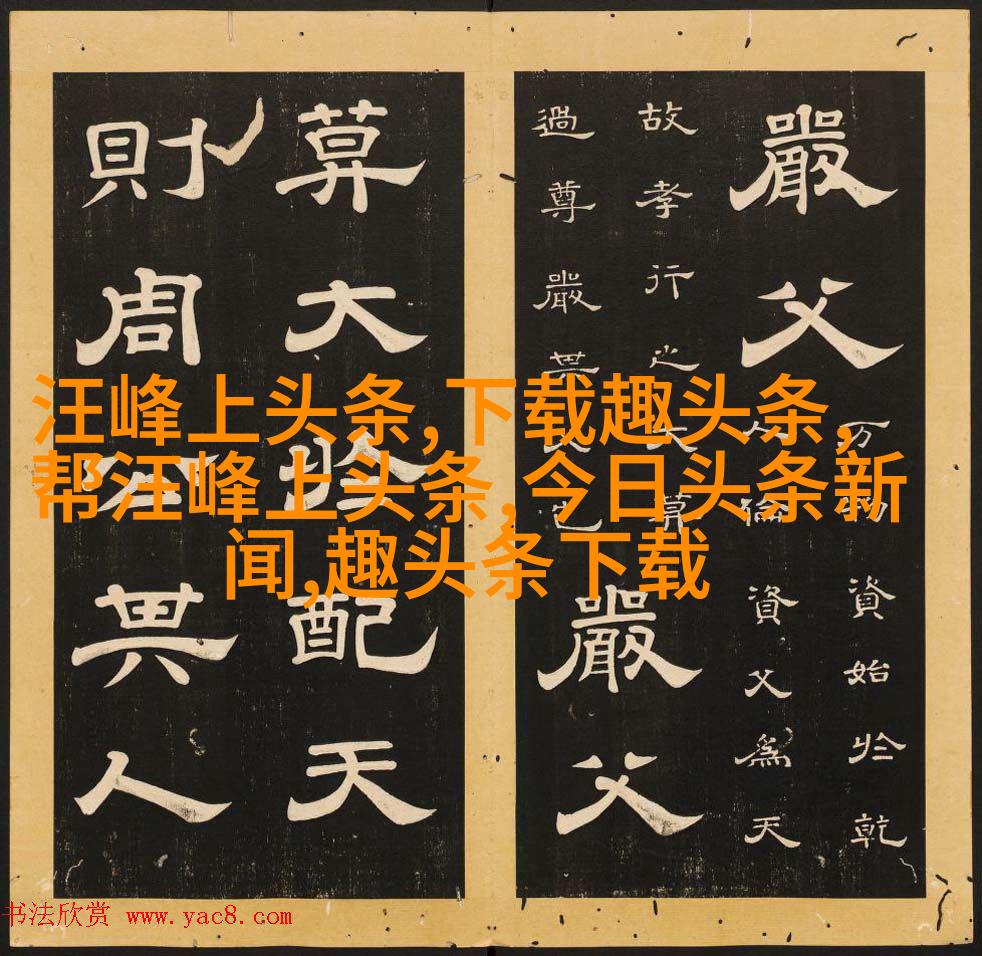 汪峰上头条,下载趣头条,
帮汪峰上头条,今日头条新
闻,趣头条下载
嚴父
万物資始於乾
人倫資父為天
故孝行之大莫
過尊嚴其父也
嚴父
莫大於配天
則周公其人
书法欣赏 www.yac8.com